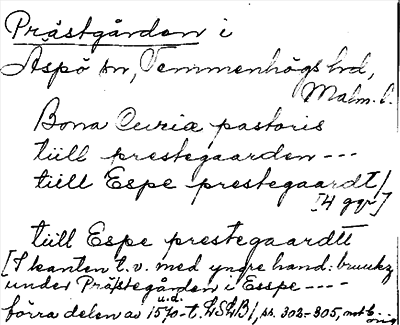 Prästgården i
Aspö sn, Vemmenhögs hd,
Malm. l.
Bona Curiæ pastoris
tiill prestegaarden ---
tiill Espe prestegaardt/
[4 ggr]
tiill Espe prestegaardtt
[I kanten t.v. med yngre hand: bruukz
under Prästegården i Esspe ----
förra delen av 1570-t. u.å. LSLB/, ss. 302-305, not